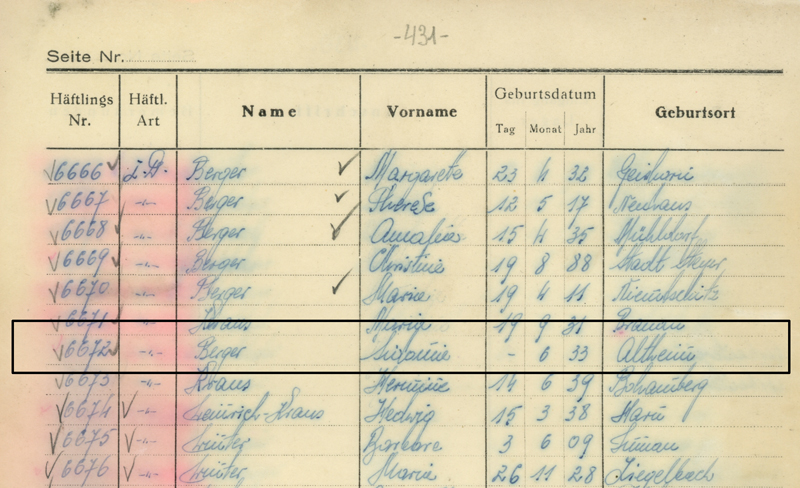 -431-
Seite Nr.
Häftlings Nr. Häftl. Art Name Vorname Geburtsdatum Tag Monat Jahr Geburtsort
6666 Z.D. Berger Margarete 23 4 32
6667 -"- Berger Therese 12 5 17 Neuhaus
6668 -"- Berger Amalia 15 4 35 Mühldorf
6669 -"- Berger Christine 19 8 88 Stadt Steyr
6670 -"- Berger Maria 19 4 11
6671 -"- Kraus Maria 19 9 31 Braunau
6672 -"- Berger Sidonie - 6 33 Altheim
6673 -"- Kraus Hermine 14 6 39
6674 -"- Heinrich-Kraus Hedwig 15 3 38
6675 -"- Barbara 3 6 09
6676 -"- Maria 26 11 28 Ziegelbach